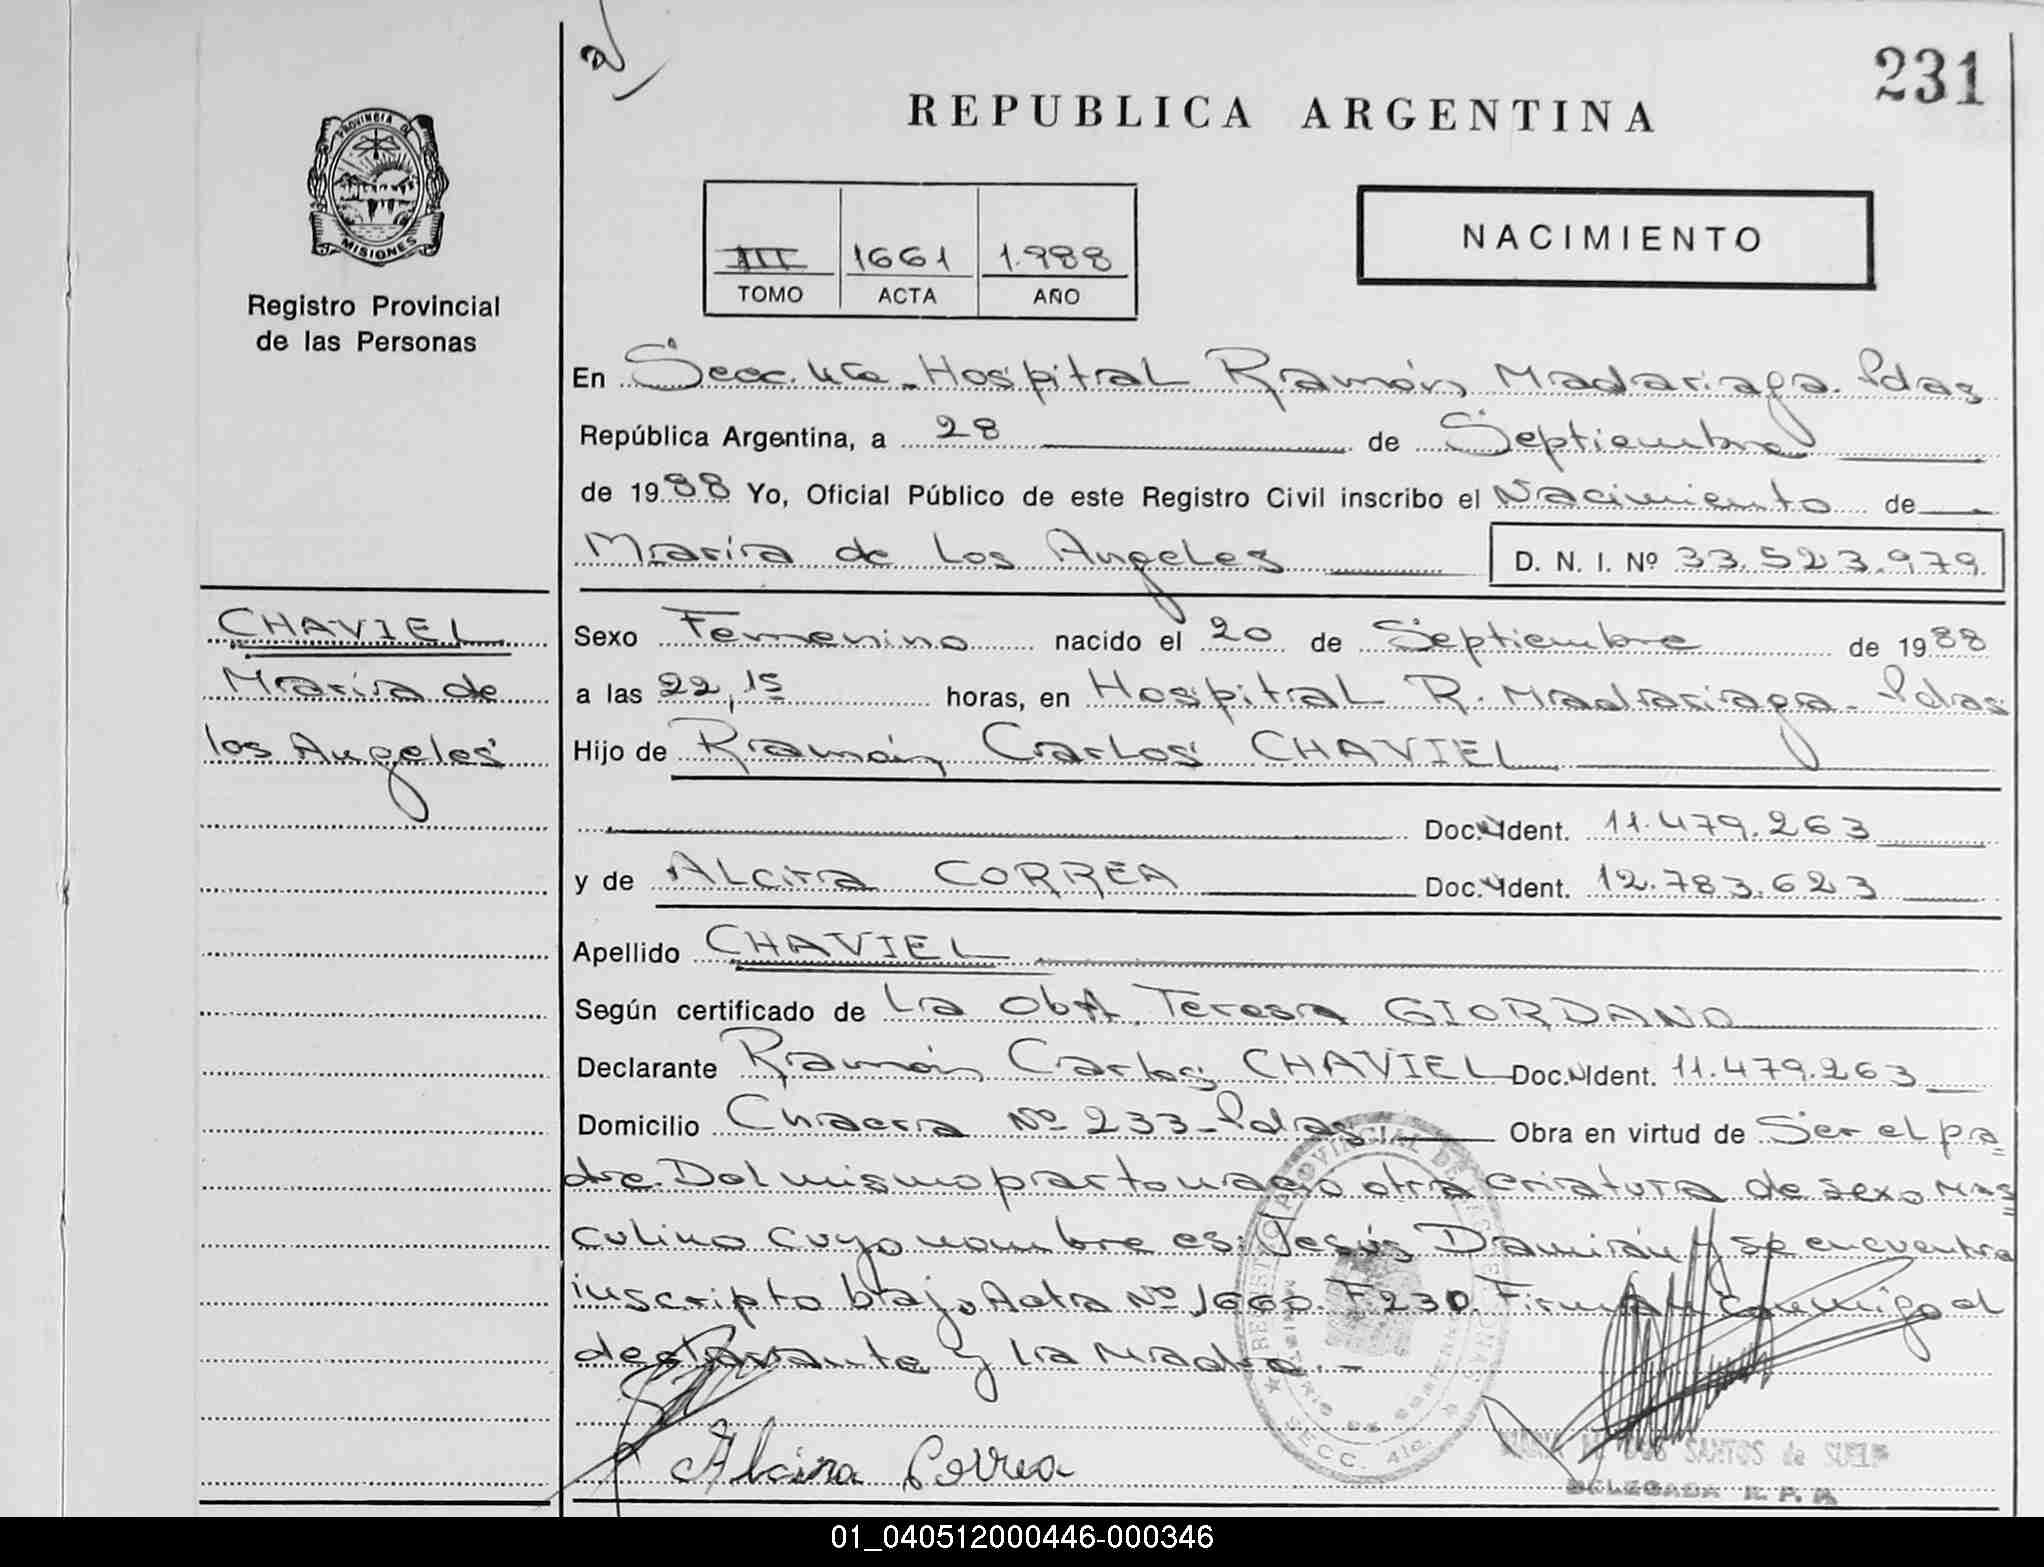 231
REPUBLICA ARGENTINA
PROVINCIA DE
MISIONES
Registro Provincial
de las Personas
III 1661 1.988
TOMO ACTA AÑO
NACIMIENTO
En Secc. 4ta. Hospital Ramón Madariaga. Pdas
República Argentina, a 28 de Septiembre
de 1988 Yo, Oficial Público de este Registro Civil inscribo el Nacimiento de
María de Los Angeles D. N. I. Nº 33.523.979
CHAVIEL
María de
los Angeles
Sexo Femenino nacido el 20 de Septiembre de 1988
a las 22,15 horas, en Hospital R. Madariaga - Pdas
Hijo de Ramón Carlos CHAVIEL
Doc. Ident. 11.479.263
y de CORREA Doc. Ident. 12.783.623
Apellido CHAVIEL
Según certificado de La Obst. Teresa GIORDANO
Declarante Ramón Carlos CHAVIEL Doc. Ident. 11.479.263
Domicilio Chacra Nº 233 - Pdas Obra en virtud de Ser el pa=
dre. Del mismo parto nació otra criatura de sexo Mas=
culino cuyo nombre es: Jesús Damián y se encuentra
inscripto bajo Acta Nº 1660. F 230. Firman conmigo el
declarante y La Madre. -
Alcira Correa
SECC. 4ta.
DOS SANTOS de
DELEGADA R. P. P.
01_040512000446-000346